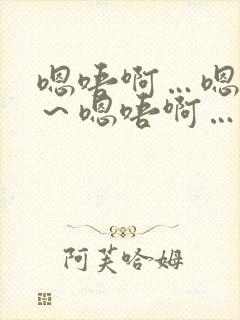 嗯唔啊…嗯
～嗯唔啊…
阿芙哈姆